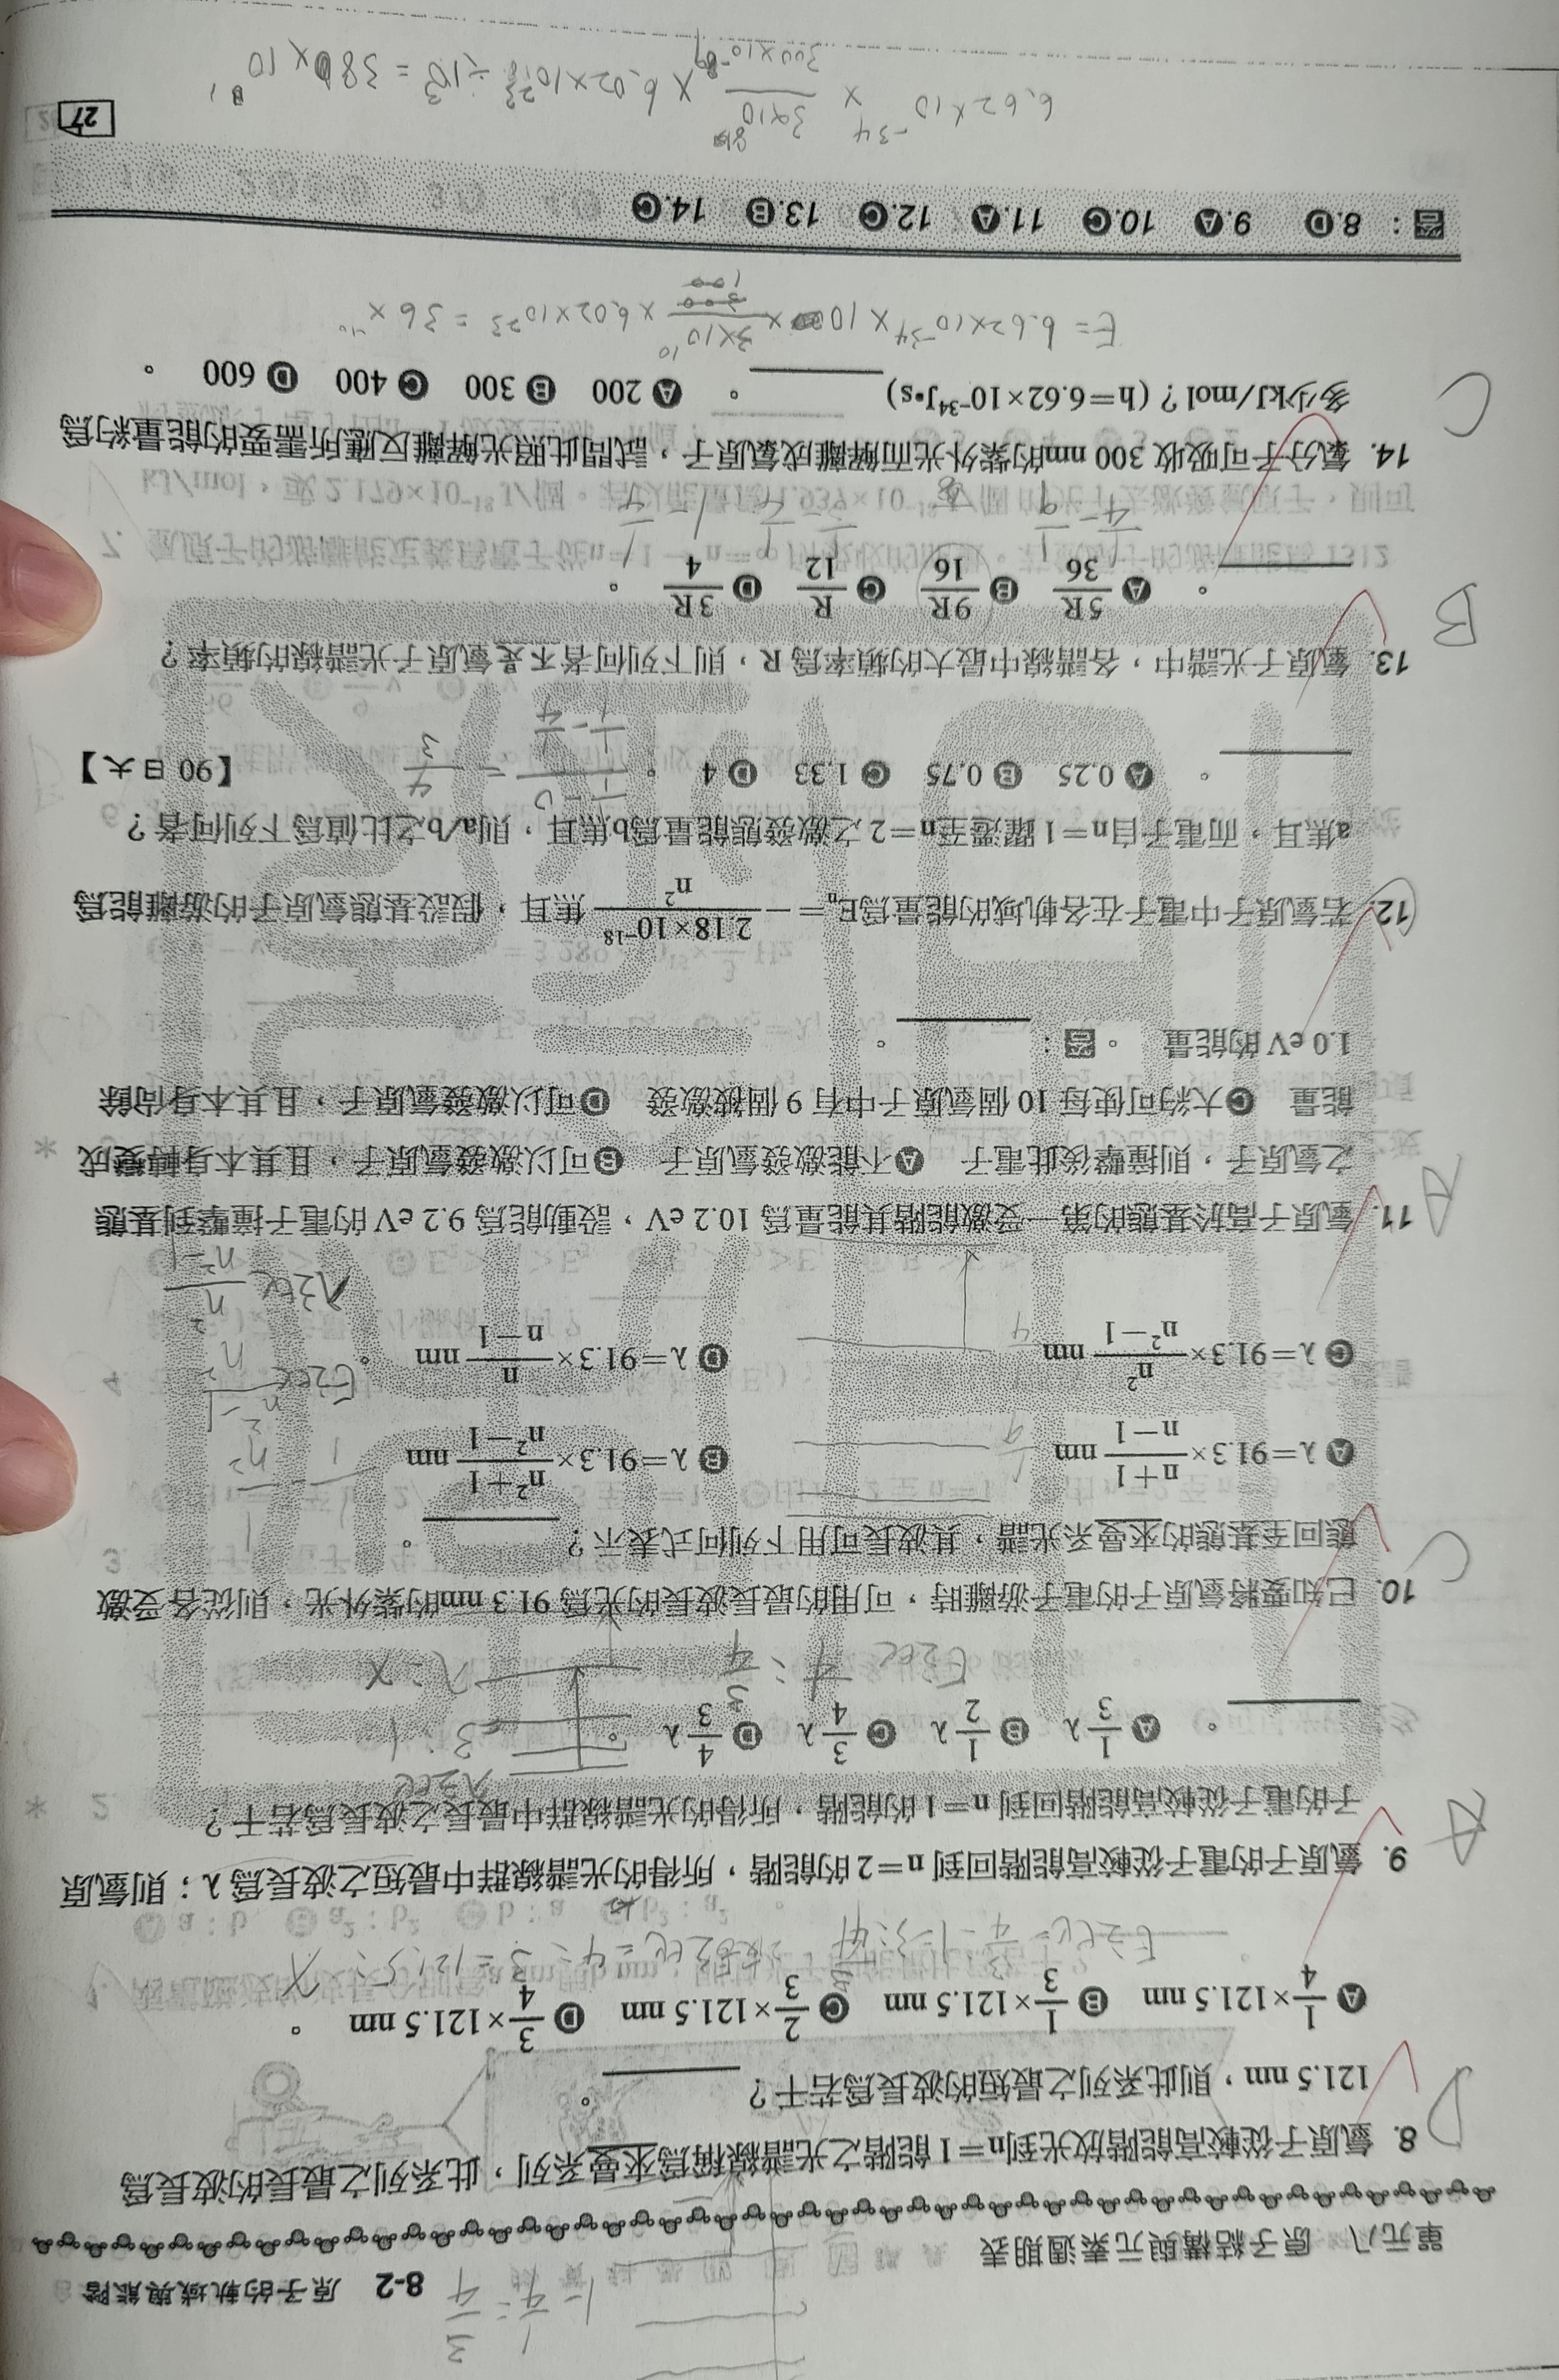 8-2 原子的軌域與能階
單元八 原子結構與元素週期表
8. 氫原子從較高能階放光到n=1能階之光譜線稱為來曼系列，此系列之最長的波長為
121.5 nm，則此系列之最短的波長為若干？
Ⓐ 1/4×121.5 nm Ⓑ 1/3×121.5 nm Ⓒ 2/3×121.5 nm Ⓓ 3/4×121.5 nm 。
9. 氫原子的電子從較高能階回到 n=2 的能階，所得的光譜線群中最短之波長為 λ；則氫原
子的電子從較高能階回到 n=1 的能階，所得的光譜線群中最長之波長為若干？
Ⓐ 1/3 λ Ⓑ 1/2 λ Ⓒ 3/4 λ Ⓓ 4/3 λ 。
10. 已知要將氫原子的電子游離時，可用的最長波長的光為 91.3 nm的紫外光，則從各受激
態回至基態的來曼系光譜，其波長可用下列何式表示？
Ⓐ λ=91.3× n+1/n−1 nm Ⓑ λ=91.3× n²+1/n²−1 nm
Ⓒ λ=91.3× n²/n²−1 nm Ⓓ λ=91.3× n/n−1 nm 。
11. 氫原子高於基態的第一受激能階其能量為 10.2 eV，設動能為 9.2 eV 的電子撞擊到基態
之氫原子，則撞擊後此電子 Ⓐ不能激發氫原子 Ⓑ可以激發氫原子，且其本身轉變成
能量 Ⓒ大約可使每 10 個氫原子中有 9 個被激發 Ⓓ可以激發氫原子，且其本身尚餘
1.0 eV 的能量 。答：
12. 若氫原子中電子在各軌域的能量為Eₙ=− 2.18×10⁻¹⁸/n² 焦耳，假設基態氫原子的游離能為
a焦耳，而電子自n=1躍遷至n=2之激發態能量為b焦耳，則a/b之比值為下列何者？
Ⓐ 0.25 Ⓑ 0.75 Ⓒ 1.33 Ⓓ 4 。 【90 日大】
13. 氫原子光譜中，各譜線中最大的頻率為 R，則下列何者不是氫原子光譜線的頻率？
Ⓐ 5R/36 Ⓑ 9R/16 Ⓒ R/12 Ⓓ 3R/4 。
14. 氯分子可吸收 300 nm的紫外光而解離成氯原子，試問此照光解離反應所需要的能量約為
多少kJ/mol？(h=6.62×10⁻³⁴J•s) 。 Ⓐ 200 Ⓑ 300 Ⓒ 400 Ⓓ 600 。
E=6.62×10⁻³⁴×
答： 8.Ⓓ 9.Ⓐ 10.Ⓒ 11.Ⓐ 12.Ⓒ 13.Ⓑ 14.Ⓒ
27